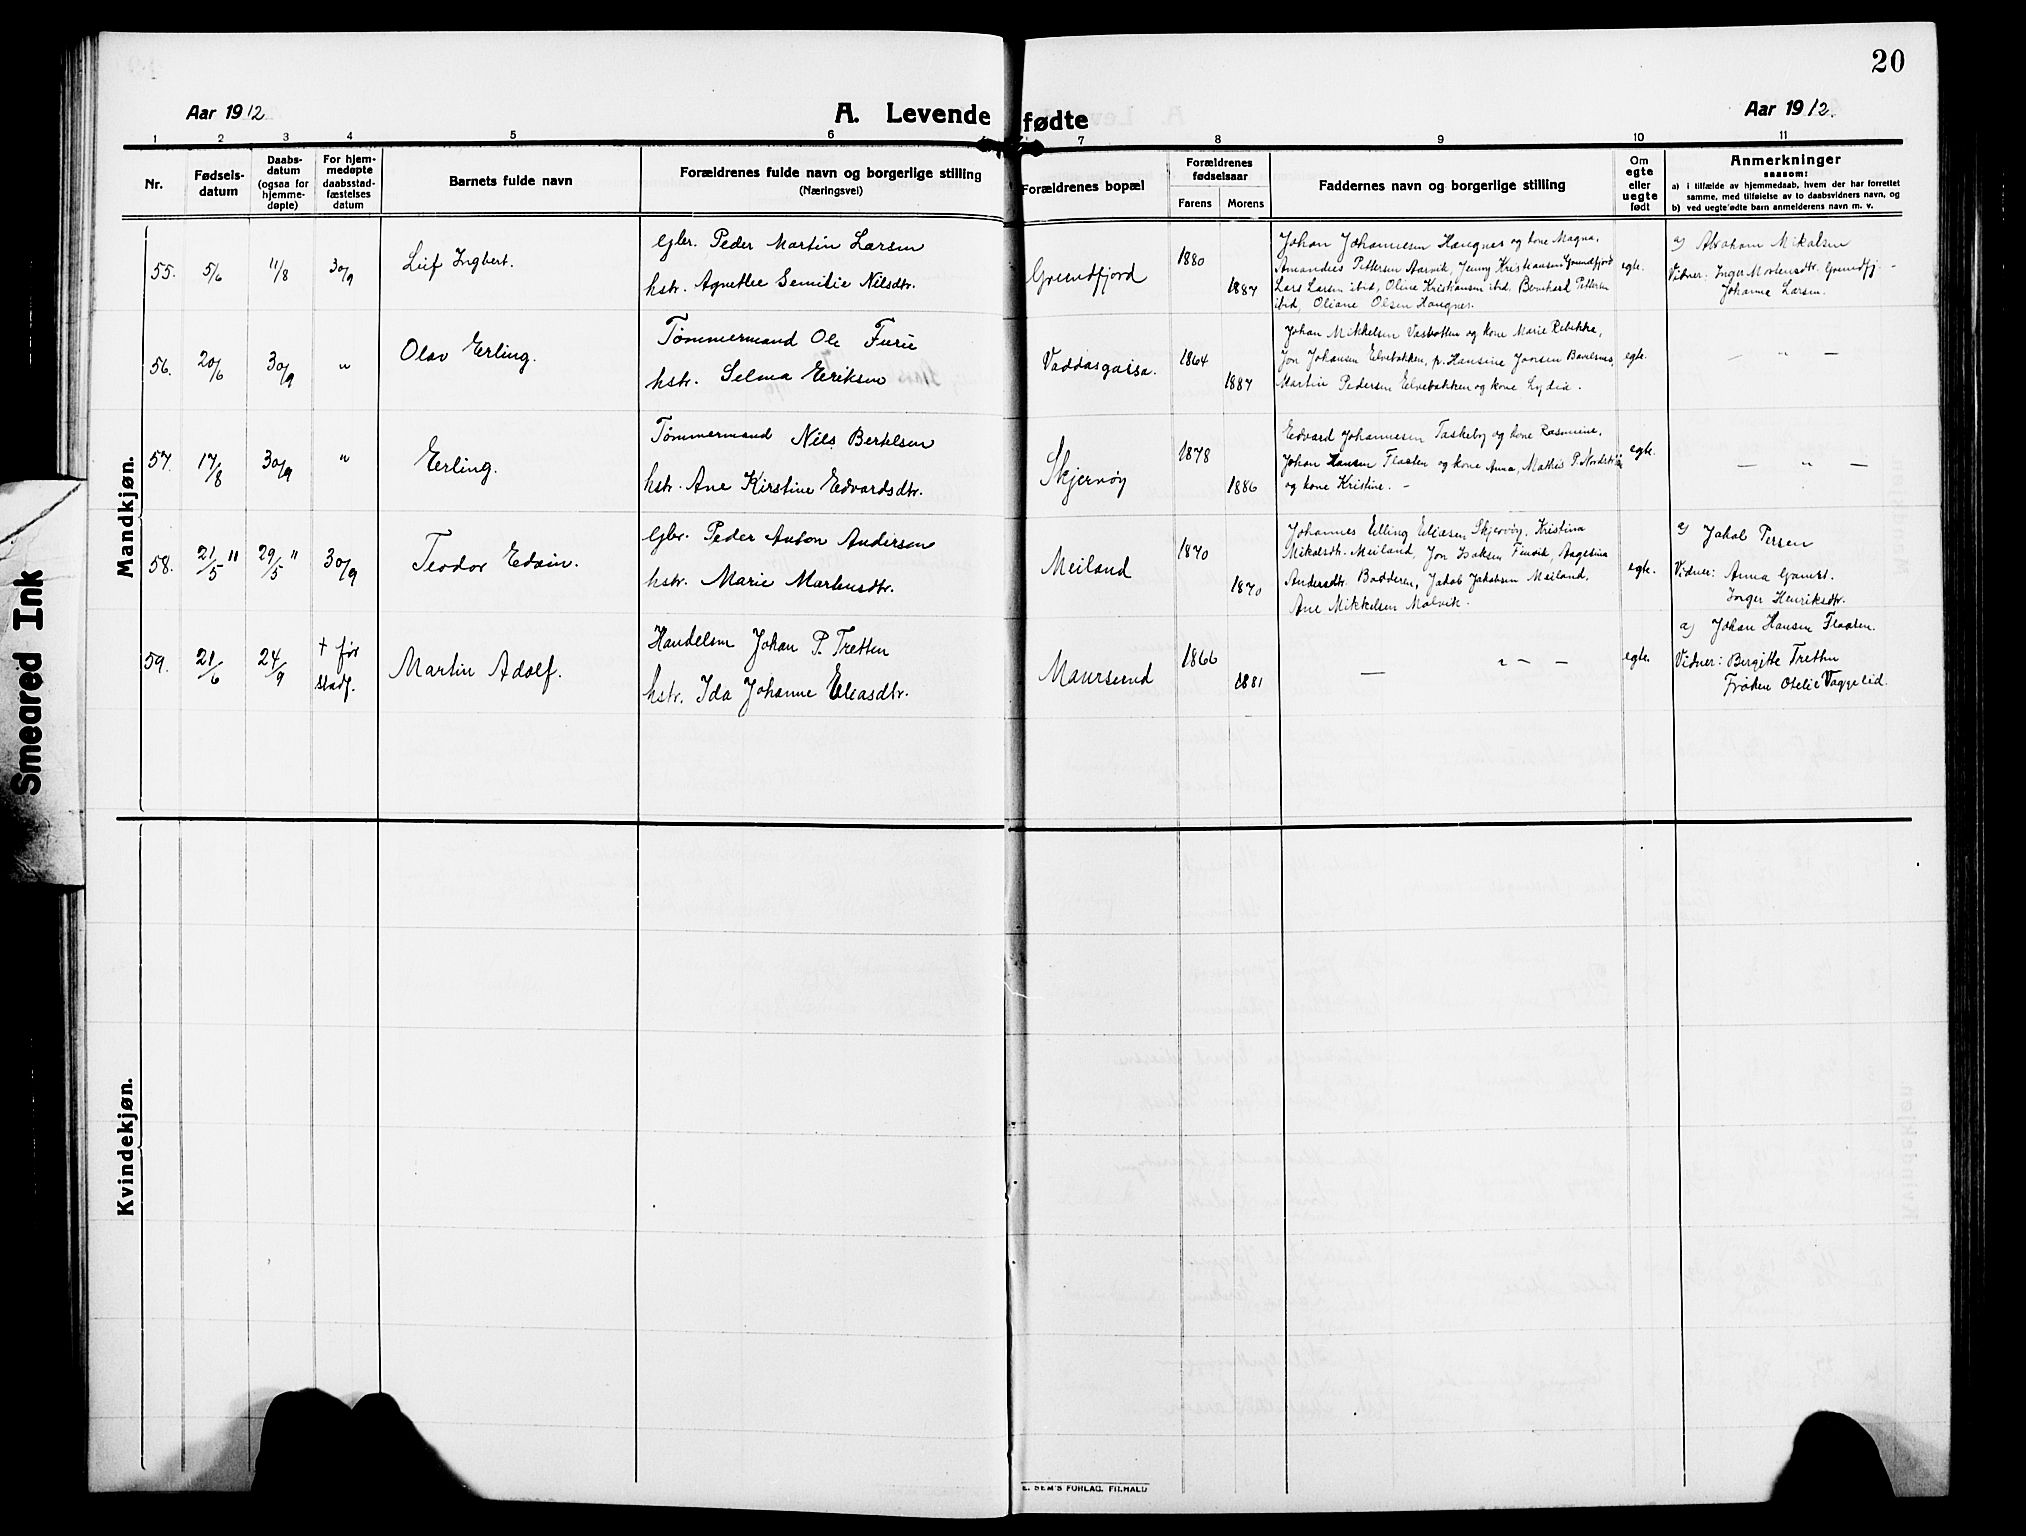 20
Aar 1912
A. Levende fødte
Aar 1912.
1 2 3 4 5 6 7 8 9 10 11
Nr.
Fødsels-
datum
Daabs-
datum
(ogsaa for
hjemme-
døpte)
For hjem-
medøpte
daabsstad-
fæstelses
datum
Barnets fulde navn
Forældrenes fulde navn og borgerlige stilling
(Næringsvei)
Forældrenes bopæl
Forældrenes
fødselsaar
Farens
Morens
Faddernes navn og borgerlige stilling
Om
egte
eller
uegte
født
Anmerkninger
saasom:
a) i tilfælde av hjemmedaab, hvem der har forrettet
samme, med tilføielse av to daabsvidners navn, og
b) ved uegte fødte barn anmelderens navn m. v.
Mandkjøn.
55.
5/6
11/8
30/9
Leif Ingbert.
Gbr. Peder Martin Larsen
hstr. Agnethe Semilie Nilsdtr.
Grundfjord
1880
1887
Johan Johannesen Haugnes og kone Magna,
Amandus Pettersen Aarvik, Jenny Kristiansen Grundfjord
Lars Larsen ibid, Oline Kristiansen ibid, Bernhard Pettersen
ibid, Oliane Olsen Haugnes.
egte.
a) Abraham Mikalsen
Vidner: Inger Mortensdtr. Grundfj. -
Johanne Larsen.
56.
20/6
30/9
"
Olav Erling.
Tømmermand Ole Furu
hstr. Selma Eriksen
Vaddasgaisa.
1864
1887
Johan Mikkelsen Vasbotten og kone Marie Rebekka,
Jon Johansen Elvebakken, p. Hansine Jonsen Bavelsnes,
Martin Pedersen Elvebakken og kone Lydia.
egte.
— " —
57.
17/8
30/9
"
Erling.
Tømmermand Nils Bertelsen
hstr. Ane Kirstine Edvardsdtr.
Skjervøy
1878
1886
Edvard Johannesen Taskeby og kone Rasmine,
Johan Hansen Flaaten og kone Anna, Mathis P.
og kone Kristine. -
egte.
— " —
58.
21/5 11
29/5 11
30/9
Teodor Edvin.
Gbr. Peder Anton Andersen
hstr. Marie Mortensdtr.
Meiland
1870
1870
Johannes Elling Eliasen Skjervøy, Kristina
Mikalsdtr. Meiland, Jon Isaksen Finvik, Aagesina
Andersdtr. Badderen, Jakob Jakobsen Meiland,
Ane Mikkelsen Molvik.
egte.
a) Jakob Persen
Vidner: Anna
Inger Henriksdtr.
59.
21/6
24/9
† før
stadf.
Martin Adolf.
Handelsm Johan P. Tretten
hstr. Ida Johanne Eliasdtr.
Maursund
1866
1881
— " — —
egte.
a) Johan Hansen Flaaten.
Vidner: Birgitte Tretten
Frøken Otelie Vaggelid.
Kvindekjøn.
E. SEM'S FORLAG. FR.HALD
Smeared Ink